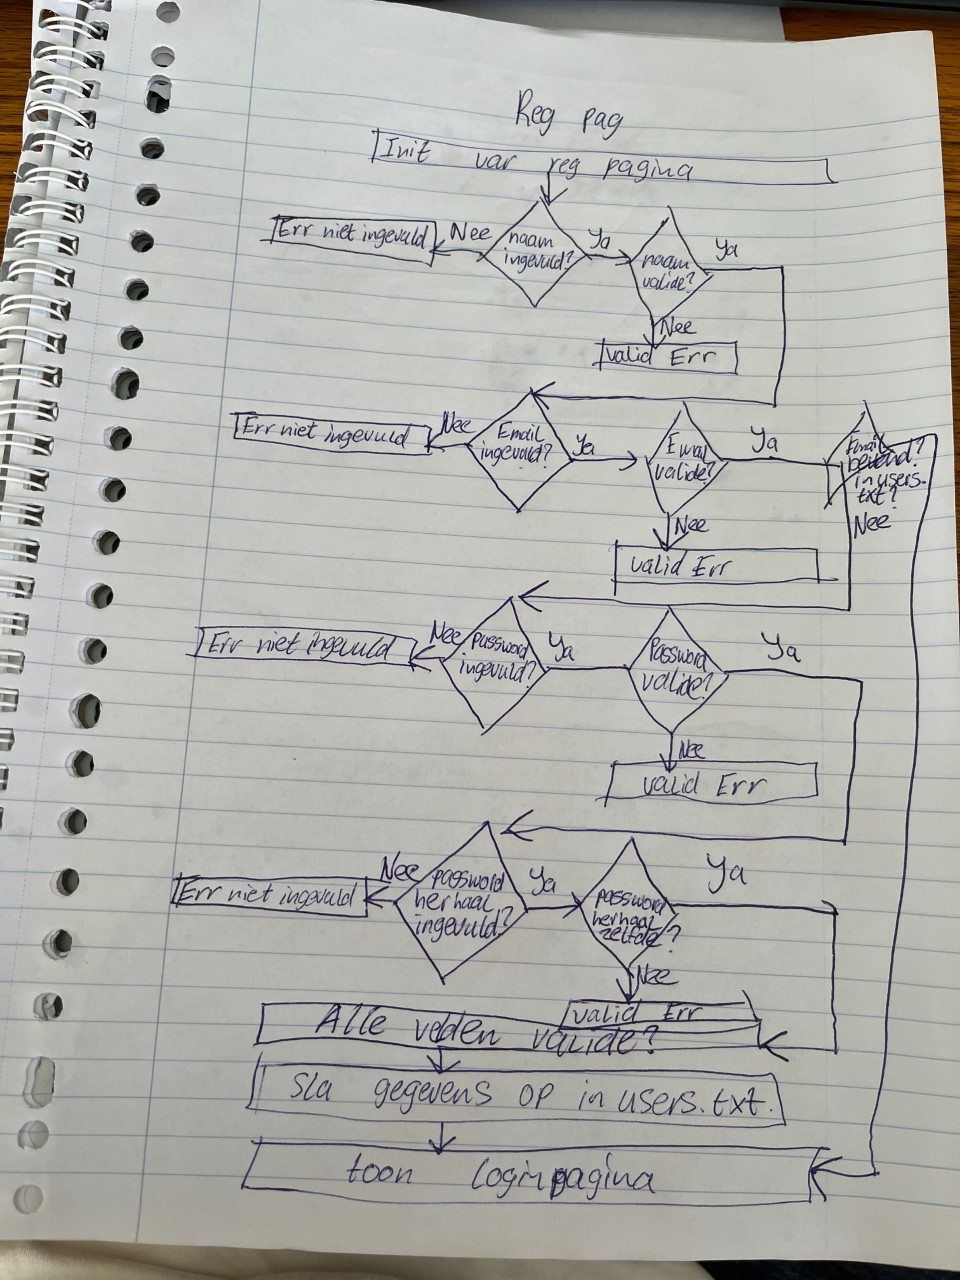 Reg pag
Init var reg pagina
Err niet ingevuld
Nee
naam
ingevuld?
Ya
naam
valide?
Ya
Nee
valid Err
Err niet ingevuld
Nee
Email
ingevuld?
Ya
Email
valide?
Ya
Email
bekend?
in users.
txt?
Nee
Nee
valid Err
Err niet ingevuld
Nee
Password
ingevuld?
Ya
Password
valide?
Ya
Nee
valid Err
Err niet ingevuld
Nee
password
herhaal
ingevuld?
Ya
password
herhaal
zelfde?
Ya
Nee
valid Err
Alle velden valide?
Sla gegevens op in users.txt.
toon loginpagina